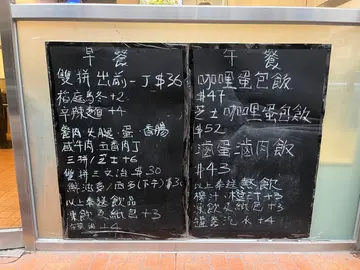 早餐
雙拼出前一丁$36
稻庭烏冬+2
辛辣麵+4
餐肉 火腿 蛋 香腸
咸牛肉 五香肉丁
三拼/芝士+6
雙拼三文治$30
以上奉送飲品
凍飲及紙包+3
+4
午餐
咖哩蛋包飯
$47
芝士咖哩蛋包飯
$52
滷蛋滷肉飯
$43
以上奉送熱飲
橙汁+3
凍飲及紙包+3
罐裝汽水+4